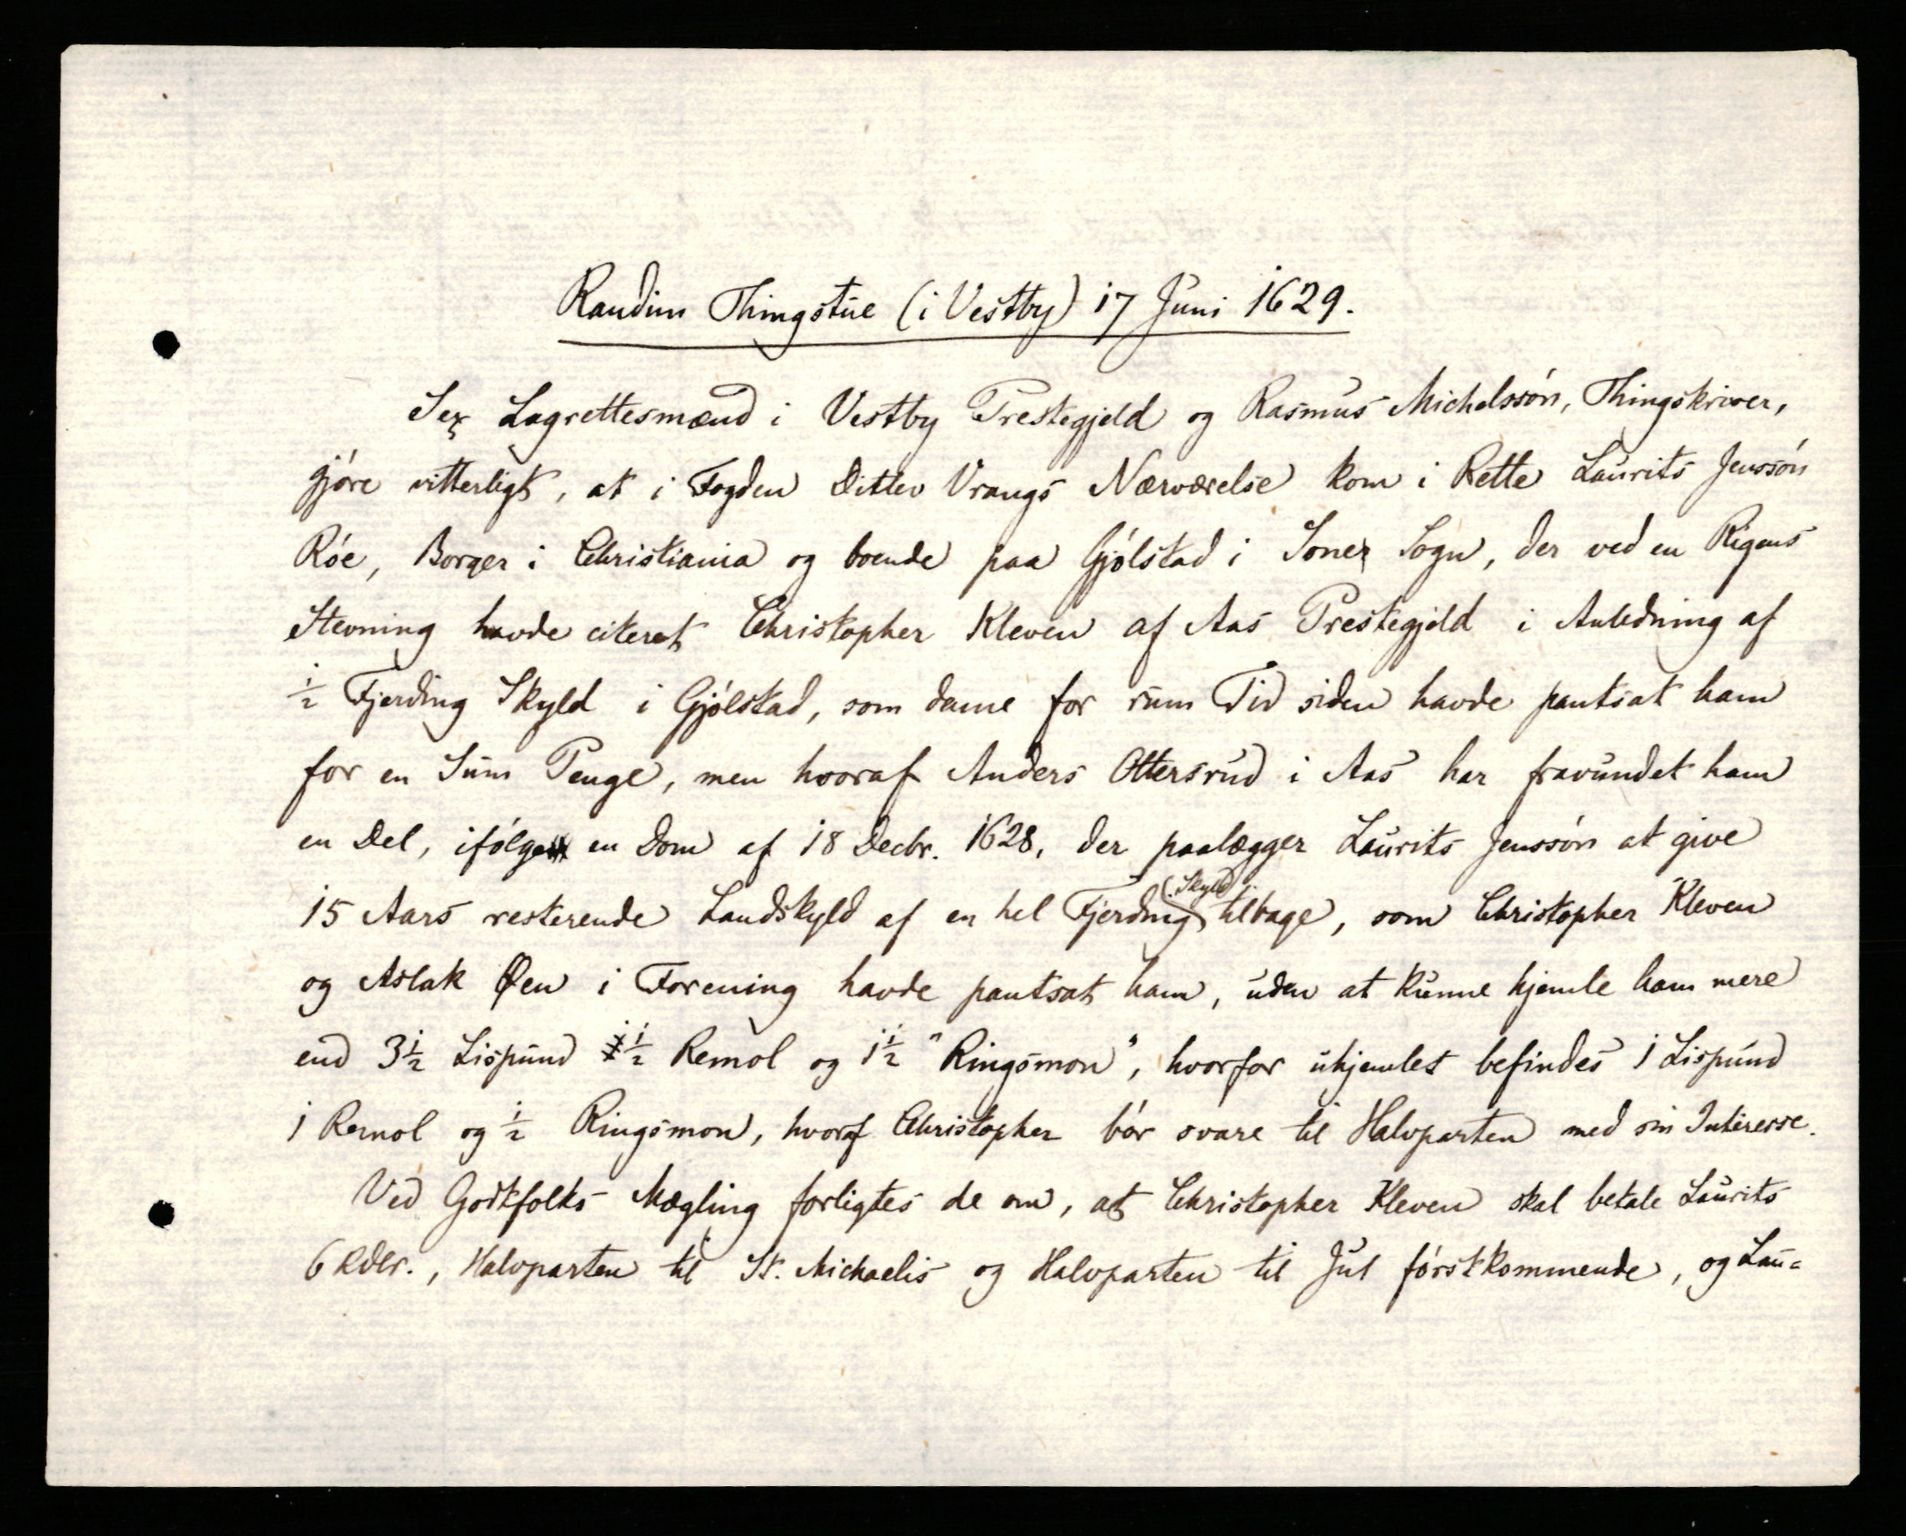 Raudim Thingstue (i Vestby) 17 Juni 1629.
Sex Lagrettesmænd i Vestby Prestegjeld og Rasmus Michelssøn, Thingskriver,
gjøre vitterligt, at i Fogden Ditlev Vrangs Nærværelse kom i Rette Laurits Jenssøn
Røe, Borger i Christiania og boende paa Gjølstad i Soner Sogn, der ved en Rigens
Stevning havde citeret Christopher Kleven af Aas Prestegjeld i Anledning af
½ Fjerding Skyld i Gjølstad, som denne for rum Tid siden havde pantsat ham
for en Sum Penge, men hvoraf Anders Ottersrud i Aas har fravundet ham
en Del, ifølge en Dom af 18 Decbr. 1628, der paalægger Laurits Jenssøn at give
15 Aars resterende Landskyld af en hel Fjerding (Skyld) tilbage, som Christopher Kleven
og Aslak Øen i Forening havde pantsat ham, uden at kunne hjemle ham mere
end 3½ Lispund 1½ Remol og 1½ "Ringsmon", hvorfor uhjemlet befindes 1 Lispund
1 Remol og ½ Ringsmon, hvoraf Christopher bør svare til Halvparten med sin Interesse.
Ved Godtfolks Mægling forligtes de om, at Christopher Kleven skal betale Laurits
6 Rdlr., Halvparten til St. Michaelis og Halvparten til Jul førstkommende, og Lau=